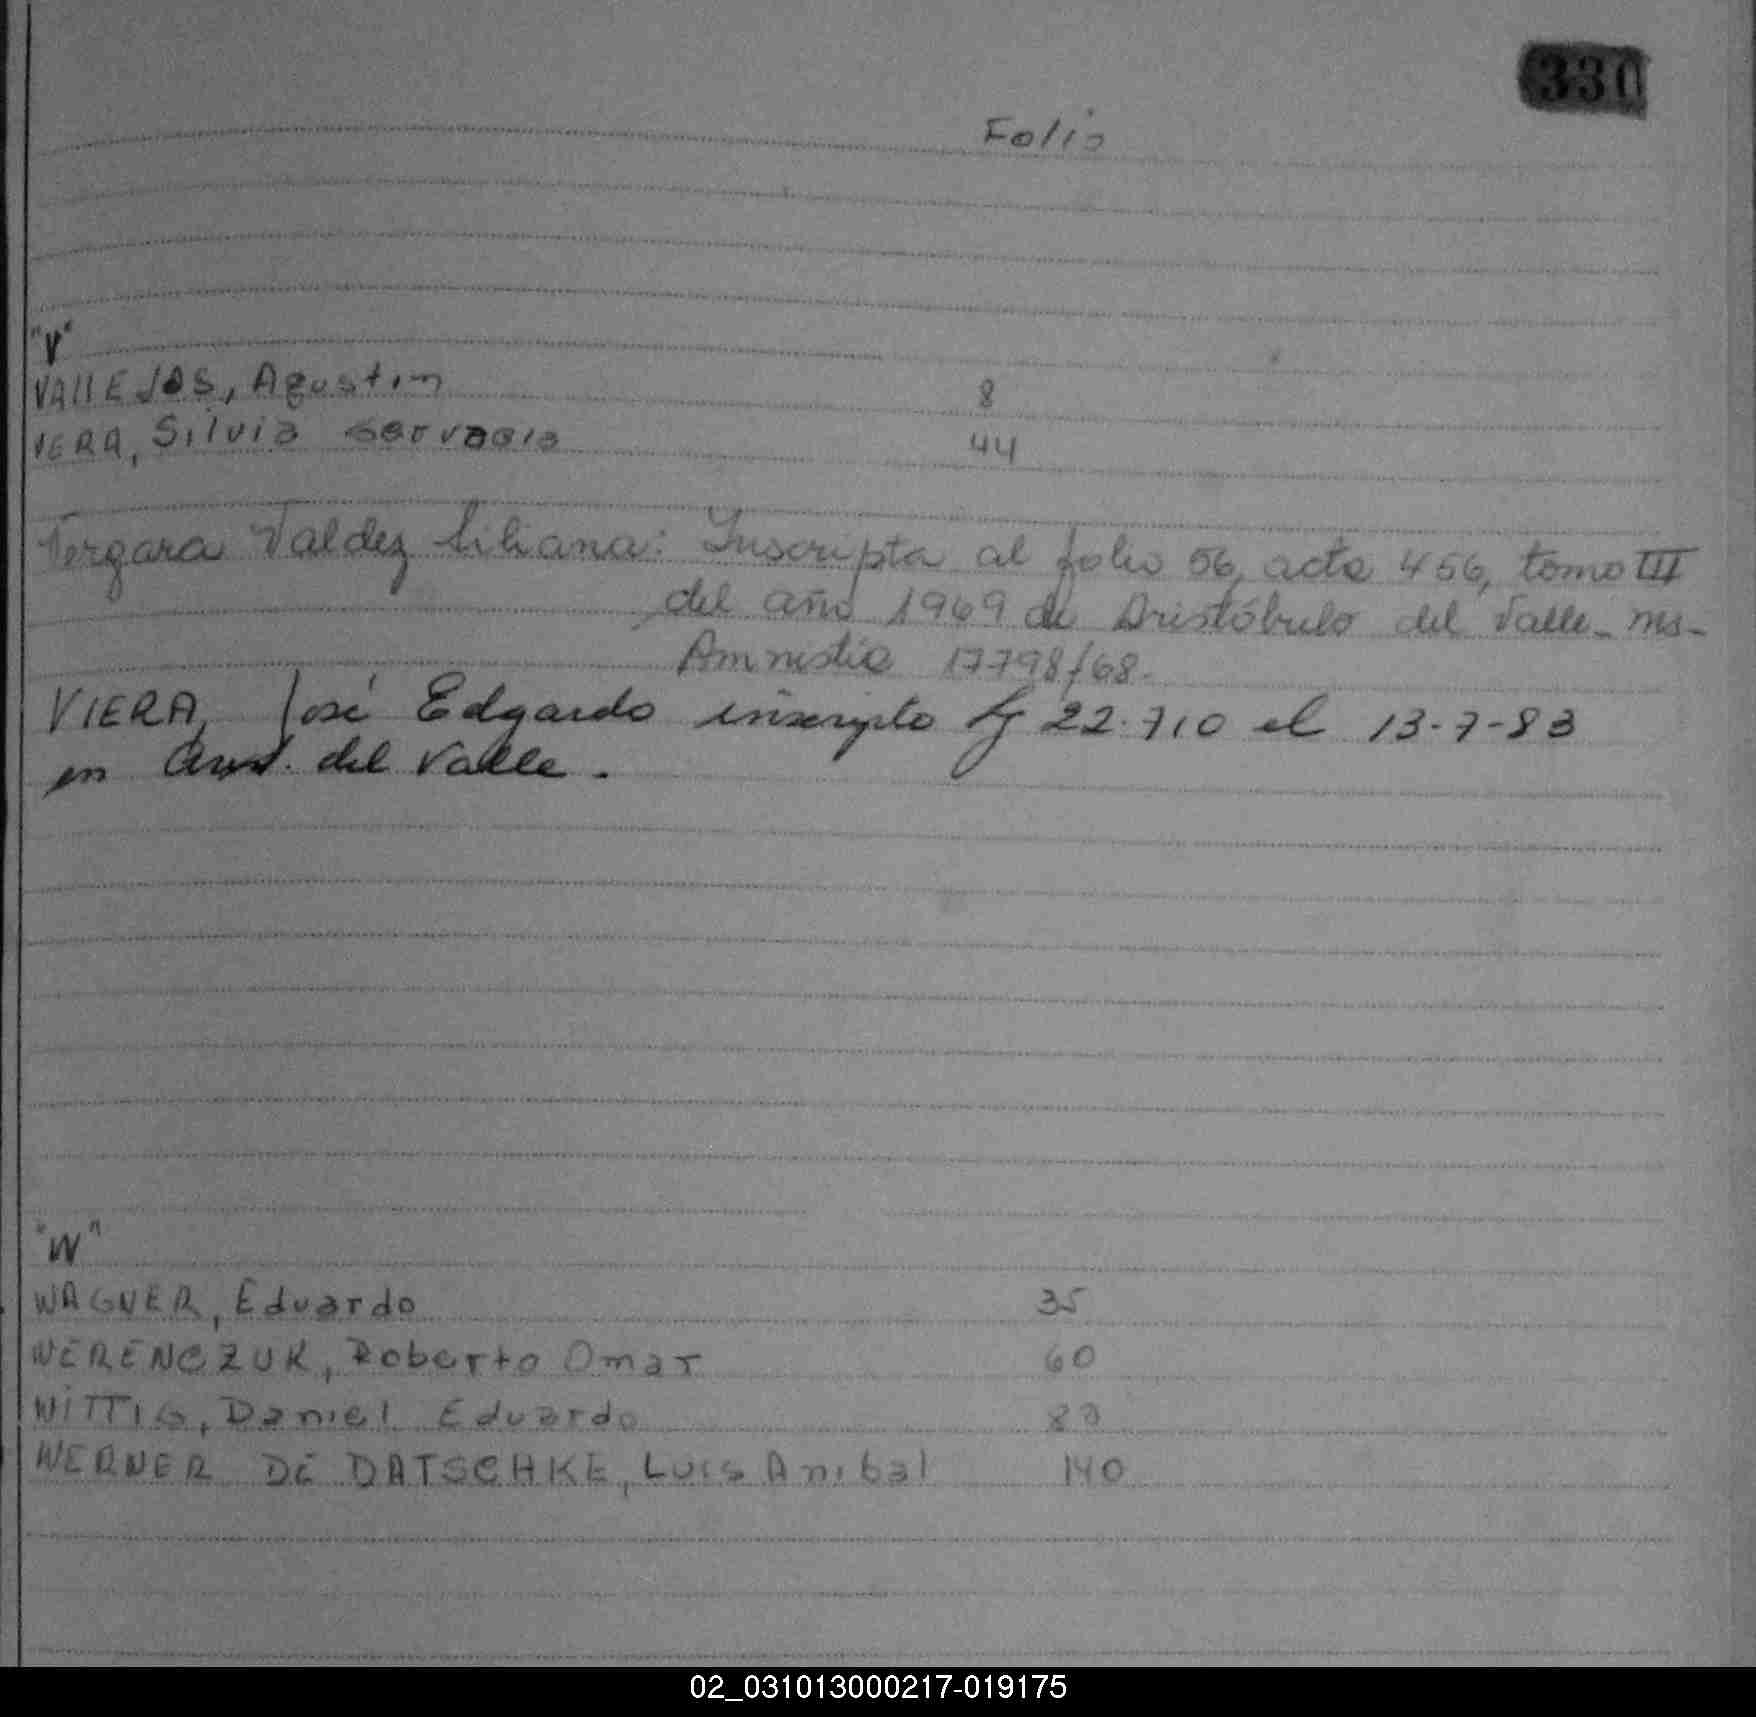 330
Folio
"V"
VALLEJOS, Agustin 8
VERA, Silvia Gervasia 44
Vergara Valdez Liliana: Inscripta al folio 56, acta 456, tomo III
del año 1969 de Aristóbulo del Valle - Ms -
Amnistia 17798/68.
VIERA, José Edgardo inscripto 22.710 el 13-7-83
en Arist. del Valle.
"W"
WAGNER, Eduardo 35
WERENCZUK, Roberto Omar 60
WITTIG, Daniel Eduardo
WERNER DE DATSCHKE, Luis Anibal 140
02_031013000217-019175